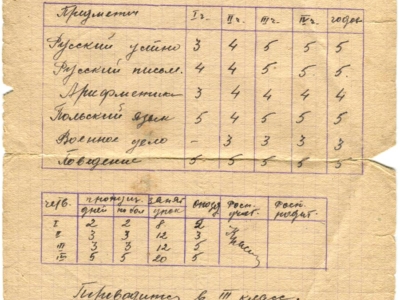 Предметы I ч. II ч. III ч. IV ч. годов.
Русский устно 3 4 5 5 5
Русский письм. 4 4 5 5 5.
Арифметика 3 4 4 4 4
Польский язык 5 4 5 5 5
Военное дело – 3 3 3 3
Поведение 5 5 5 5 5
четв. пропущ. занят. опозд Расп. Расп.
дней по бол урок родит.
I 2 2 8 2
II 3 3 12 3
III 3 3 12 5
IV 5 5 20 5
Переводится в III класс